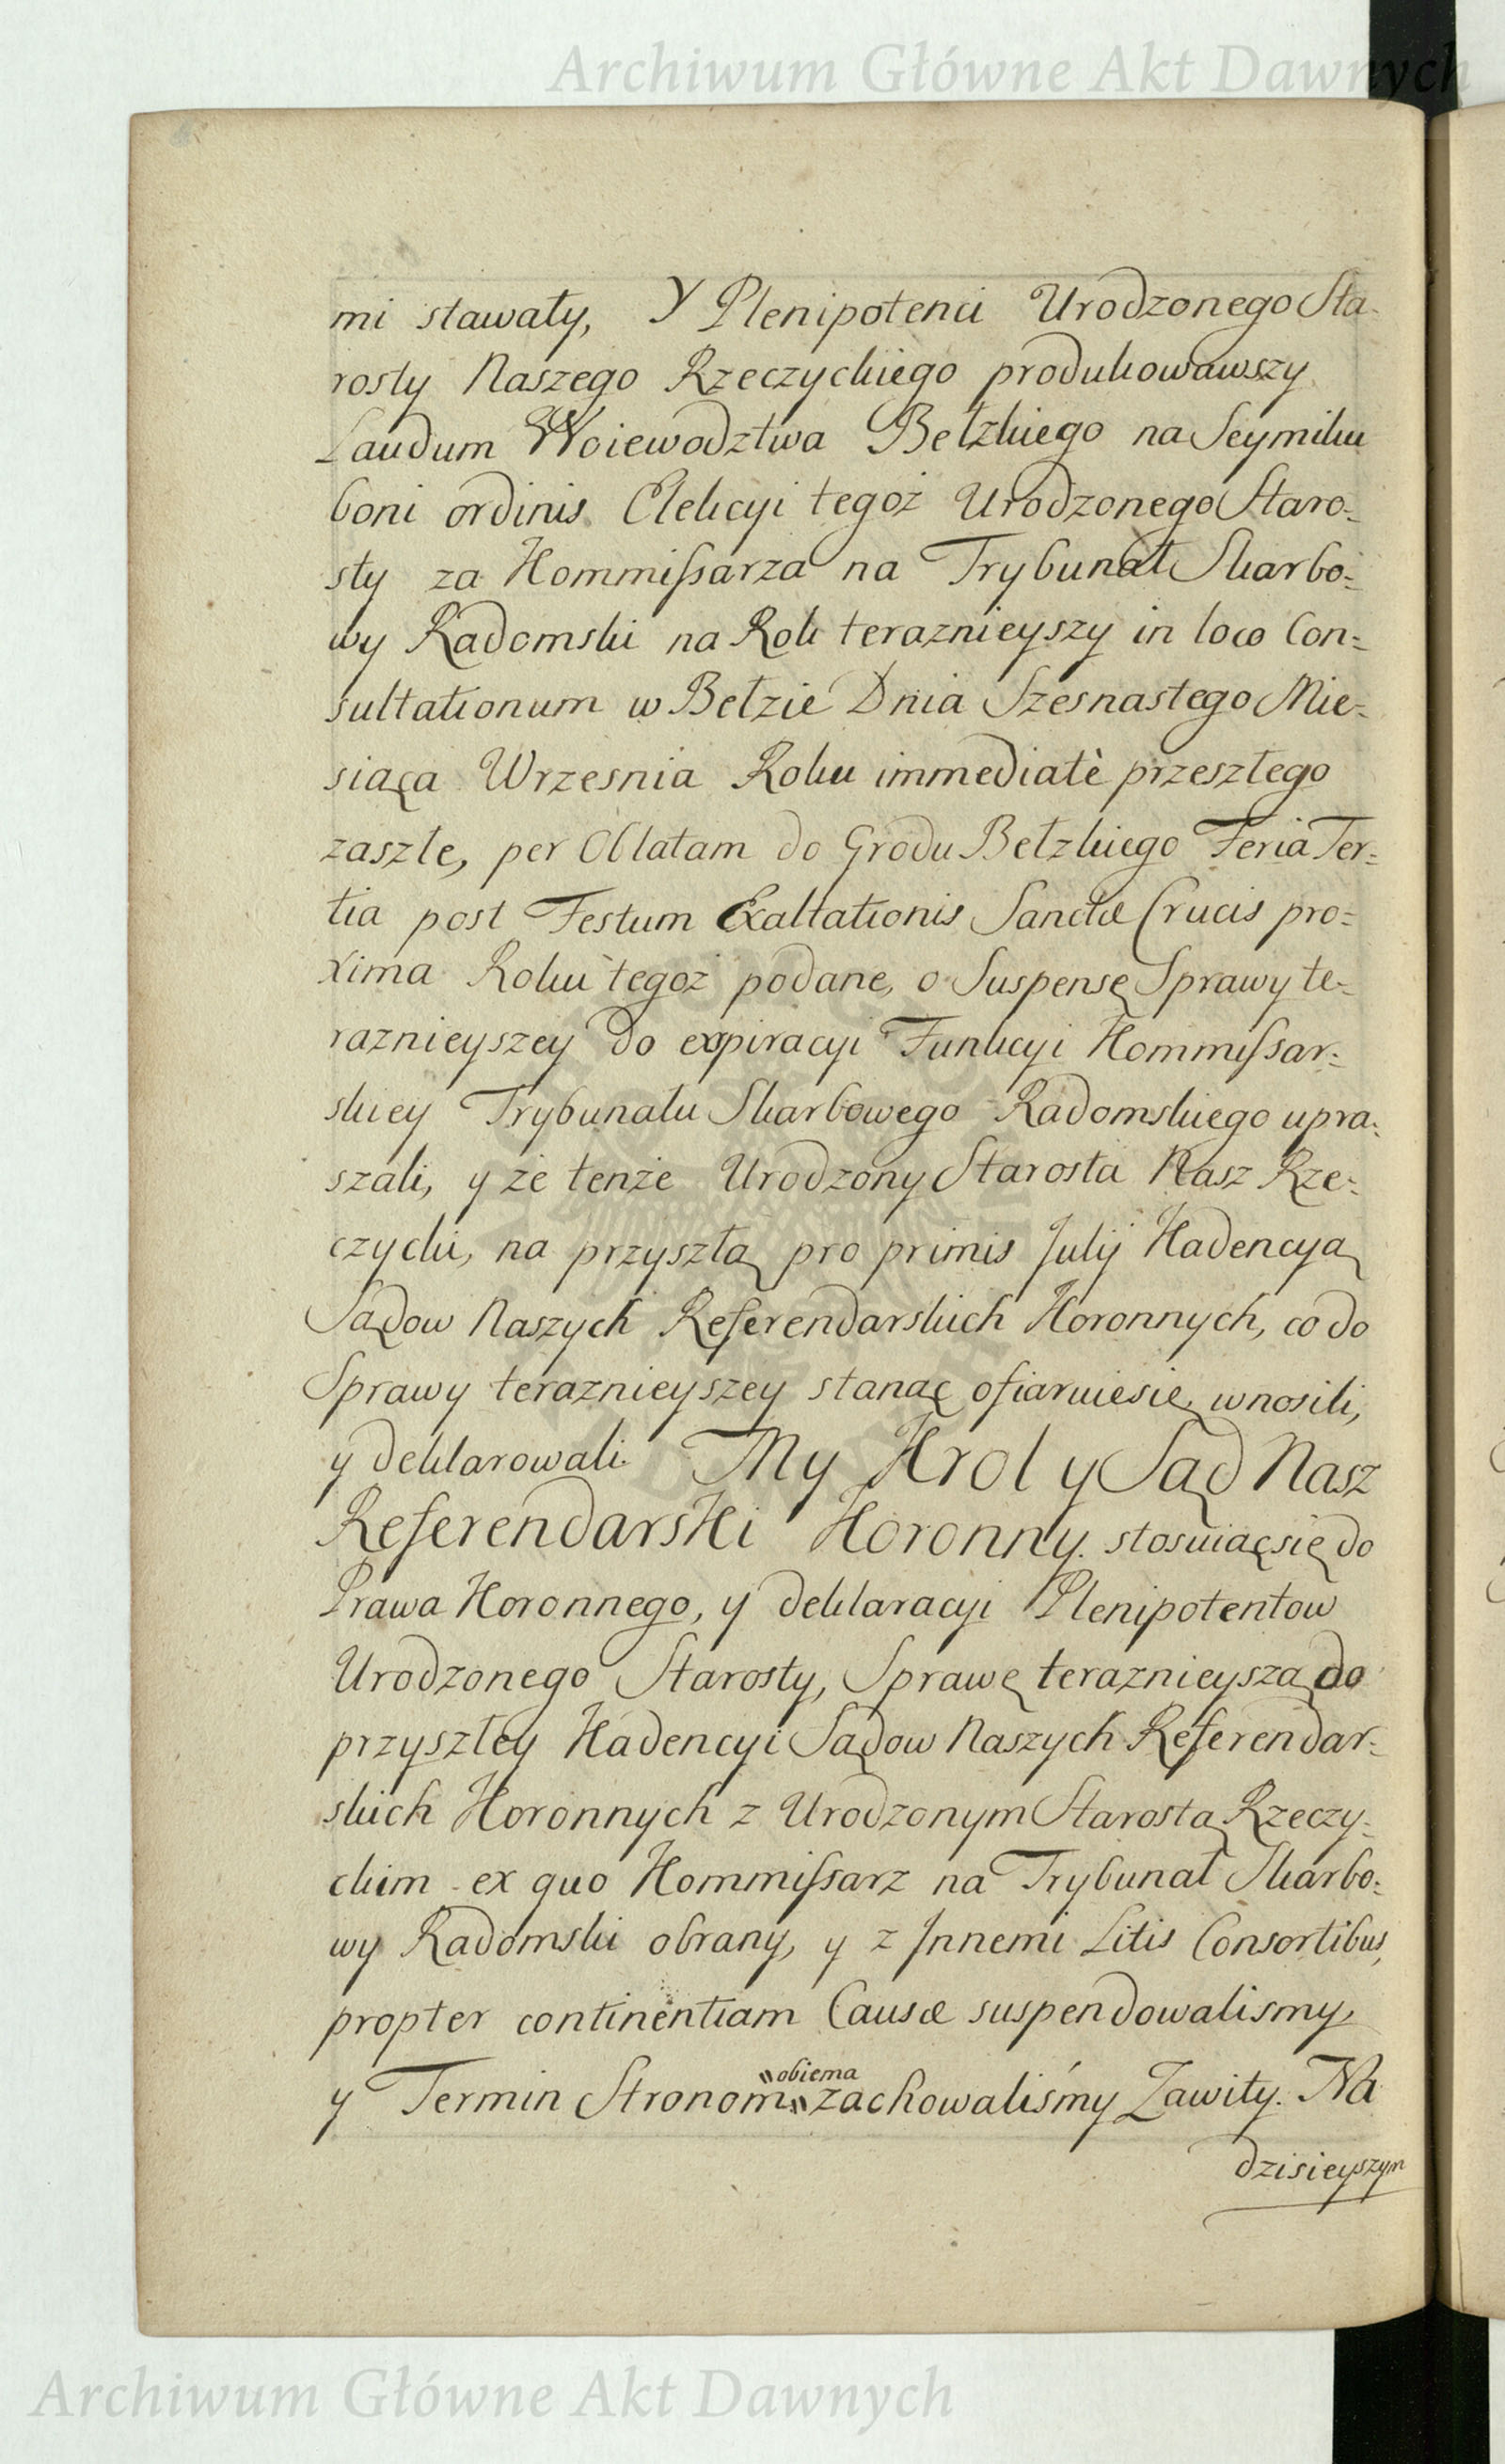 Archiwum Główne Akt Dawnych
mi stawały, Y Plenipotenci Urodzonego Sta-
rosty Naszego Rzeczyckiego produkowawszy
Laudum Woiewodztwa Bełzkiego na Seymiku
boni ordinis Elekcyi tegoż Urodzonego Staro=
sty za Kommissarza na Trybunał Skarbo=
wy Radomski na Rok teraznieyszy in loco Con=
sultationum w Bełzie Dnia Szesnastego Mie=
siąca Wrzesnia Roku immediatè przeszłego
zaszłe, per Oblatam do Grodu Bełzkiego Feria Ter=
tia post Festum Exaltationis Sanctæ Crucis pro=
xima Roku tegoż podane, o Suspensę Sprawy te=
raznieyszey do expiracyi Funkcyi Kommissar=
skiey Trybunału Skarbowego Radomskiego upra=
szali, y że tenże Urodzony Starosta Nasz Rze=
czycki, na przyszłą pro primis Julij Kadencyą
Sądow Naszych Referendarskich Koronnych, co do
Sprawy teraznieyszey stanąć ofiaruiesię, wnosili,
y deklarowali. My Krol y Sąd Nasz
Referendarski Koronny. stosuiąc się do
Prawa Koronnego, y deklaracyi Plenipotentow
Urodzonego Starosty, Sprawę teraznieyszą do
przyszłey Kadencyi Sądow Naszych Referendar=
skich Koronnych z Urodzonym Starostą Rzeczy=
ckim ex quo Kommissarz na Trybunał Skarbo=
wy Radomski obrany, y z Innemi Litis Consortibus,
propter continentiam Causæ suspendowalismy,
obiema
y Termin Stronom zachowaliśmy Zawity. Na
dzisieyszym
Archiwum Główne Akt Dawnych